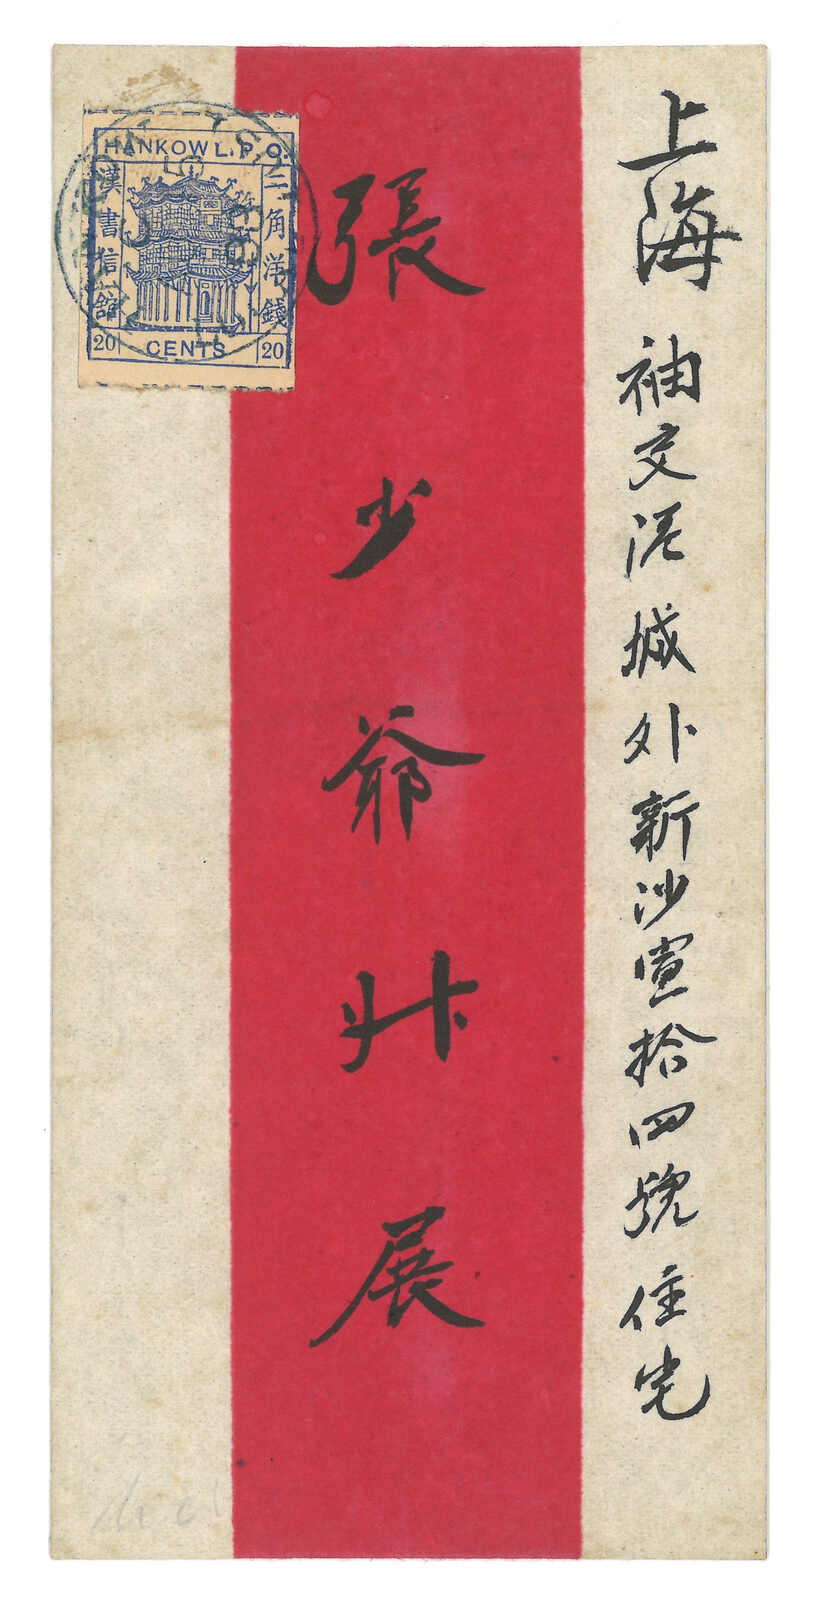 上海 袖交泥城外新沙宣拾四號住宅
張少爺升展
HANKOW L. P. O.
二角洋錢
漢書信館
20 CENTS 20